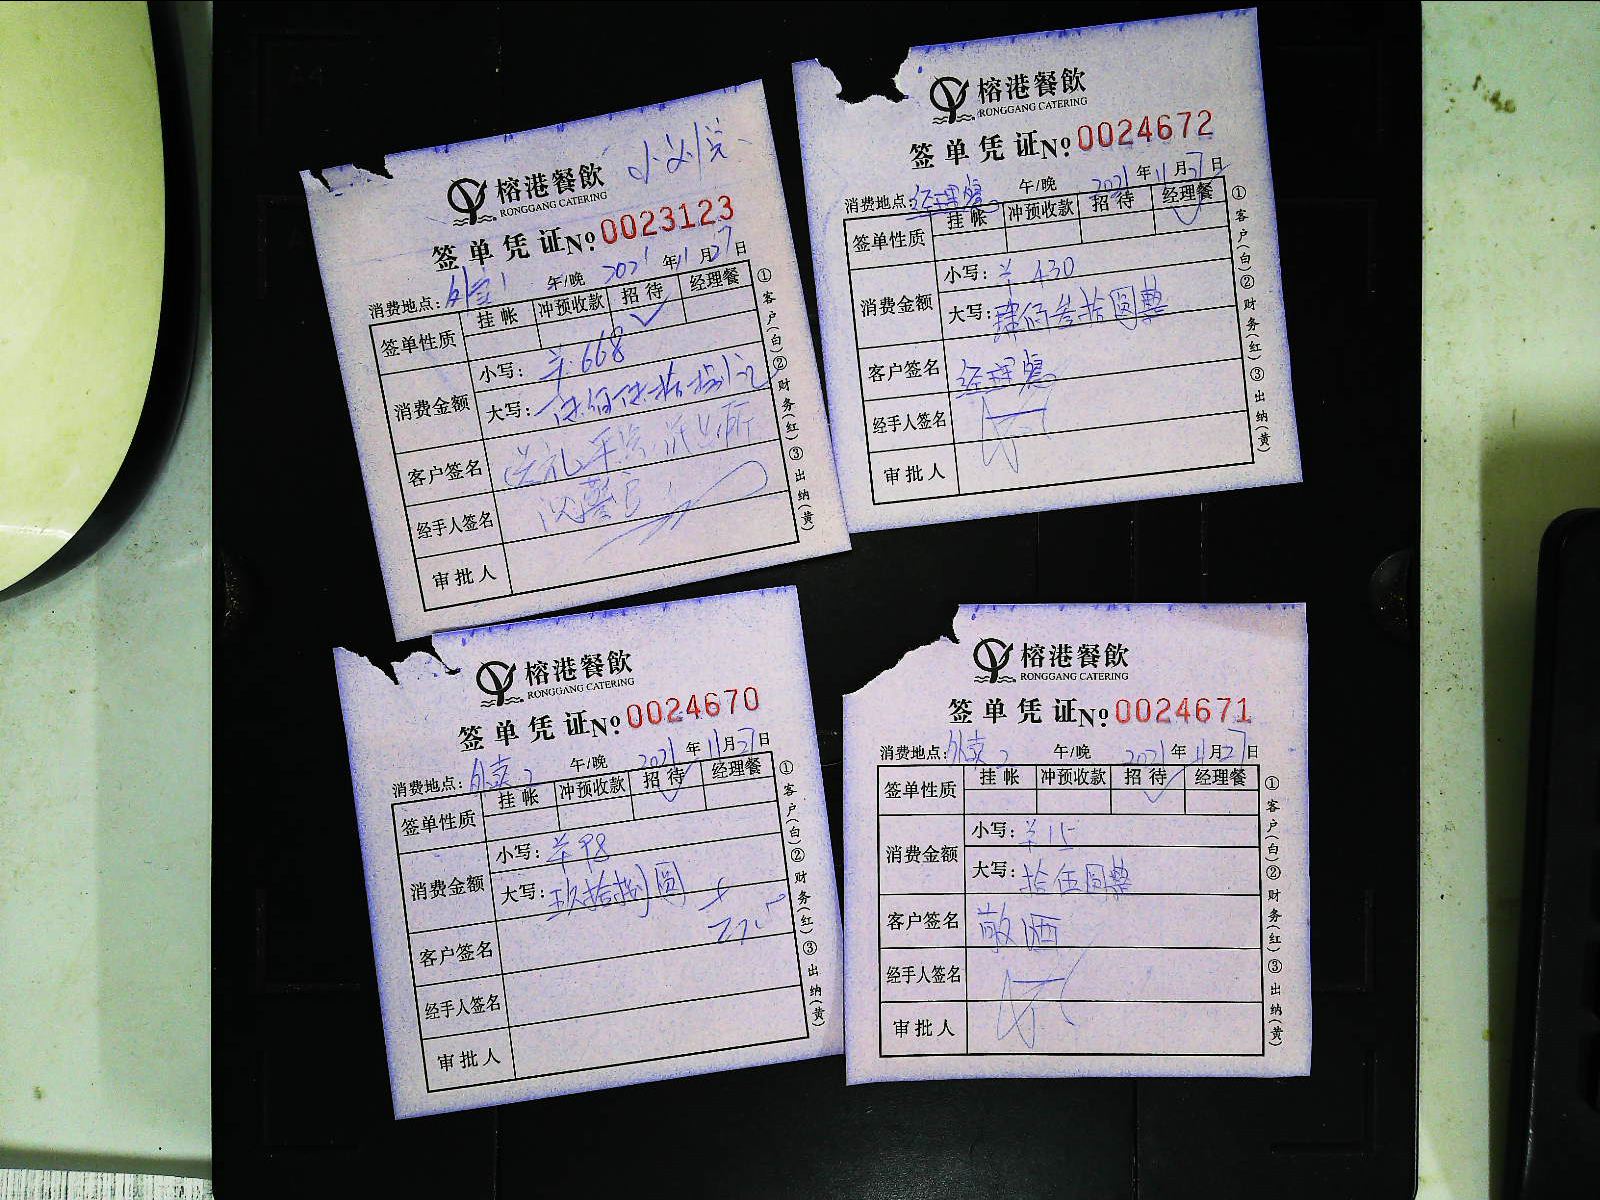 榕港餐飲
RONGGANG CATERING
签单凭证№0023123
消费地点: 午/晚 2021年11月27日
签单性质 挂帐 冲预收款 招待 经理餐
消费金额 小写: ¥668
大写: 陆佰陆拾捌
客户签名
经手人签名
审批人
①客户(白)②财务(红)③出纳(黄)
榕港餐飲
RONGGANG CATERING
签单凭证№0024672
消费地点:经理餐 午/晚 2021年11月27日
签单性质 挂帐 冲预收款 招待 经理餐
消费金额 小写: ¥430
大写:肆佰叁拾圆整
客户签名 经理餐
经手人签名
审批人
①客户(白)②财务(红)③出纳(黄)
榕港餐飲
RONGGANG CATERING
签单凭证№0024670
消费地点:外卖2 午/晚 2021年11月27日
签单性质 挂帐 冲预收款 招待 经理餐
消费金额 小写: ¥98
大写:玖拾捌圆
客户签名
经手人签名
审批人
①客户(白)②财务(红)③出纳(黄)
榕港餐飲
RONGGANG CATERING
签单凭证№0024671
消费地点:外卖2 午/晚 2021年11月27日
签单性质 挂帐 冲预收款 招待 经理餐
消费金额 小写: ¥15
大写: 拾伍圆整
客户签名 敬酒
经手人签名
审批人
①客户(白)②财务(红)③出纳(黄)